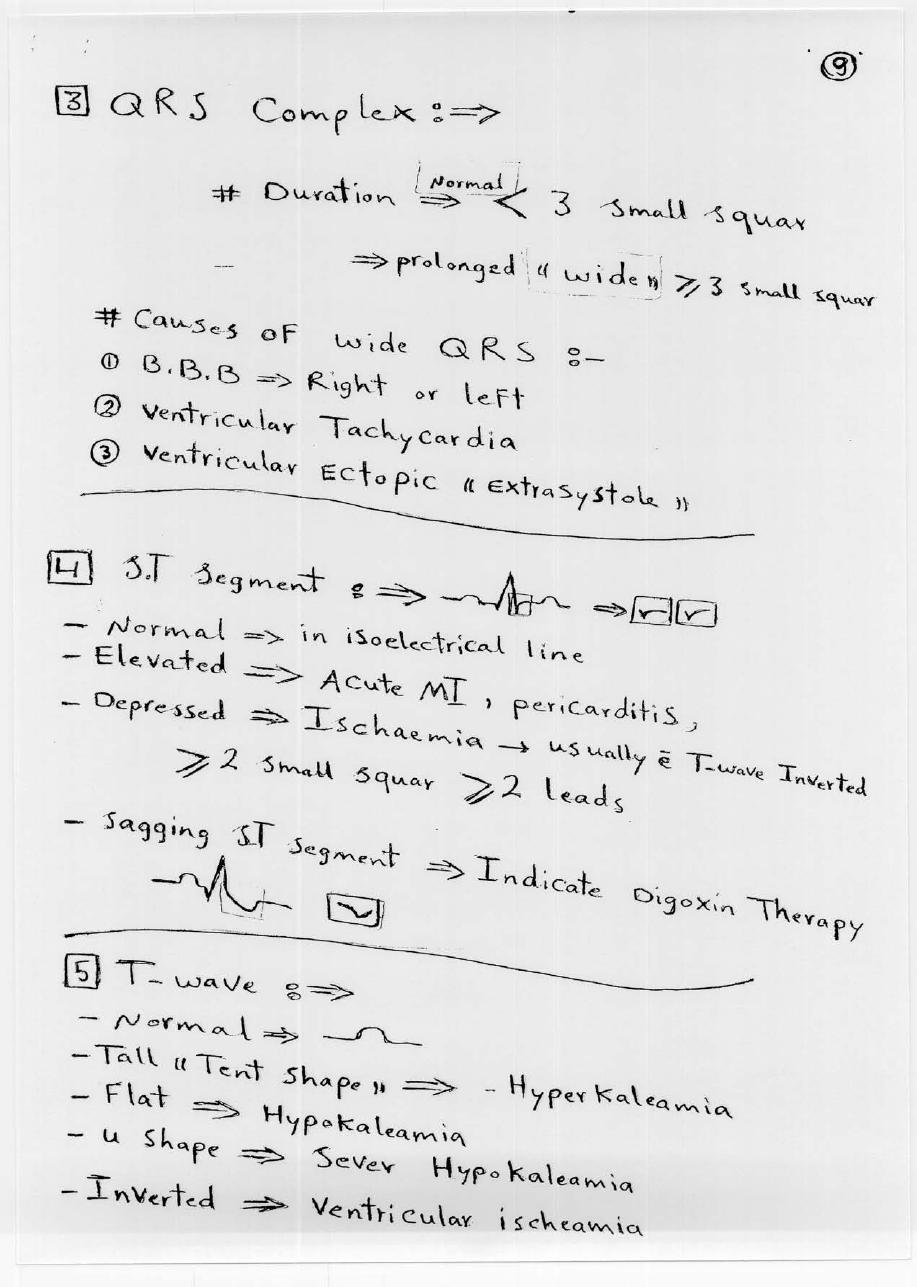 9
3 QRS Complex :⇒
# Duration Normal ⇒ < 3 small squar
⇒ prolonged " wide " ⩾ 3 small squar
# Causes OF wide QRS :-
① B.B.B ⇒ Right or leFt
② Ventricular Tachycardia
③ Ventricular Ectopic " Extrasystole "
4 S.T segment : ⇒ ⇒
- Normal ⇒ in isoelectrical line
- Elevated ⇒ Acute MI, pericarditis,
- Depressed ⇒ Ischaemia → usually c̄ T-wave Inverted
⩾ 2 small squar ⩾ 2 leads
- sagging S.T segment ⇒ Indicate Digoxin Therapy
5 T-wave :⇒
- Normal ⇒
- Tall " Tent shape " ⇒ - HyperKaleamia
- Flat ⇒ Hypokaleamia
- u shape ⇒ Sever Hypokaleamia
- Inverted ⇒ Ventricular ischeamia